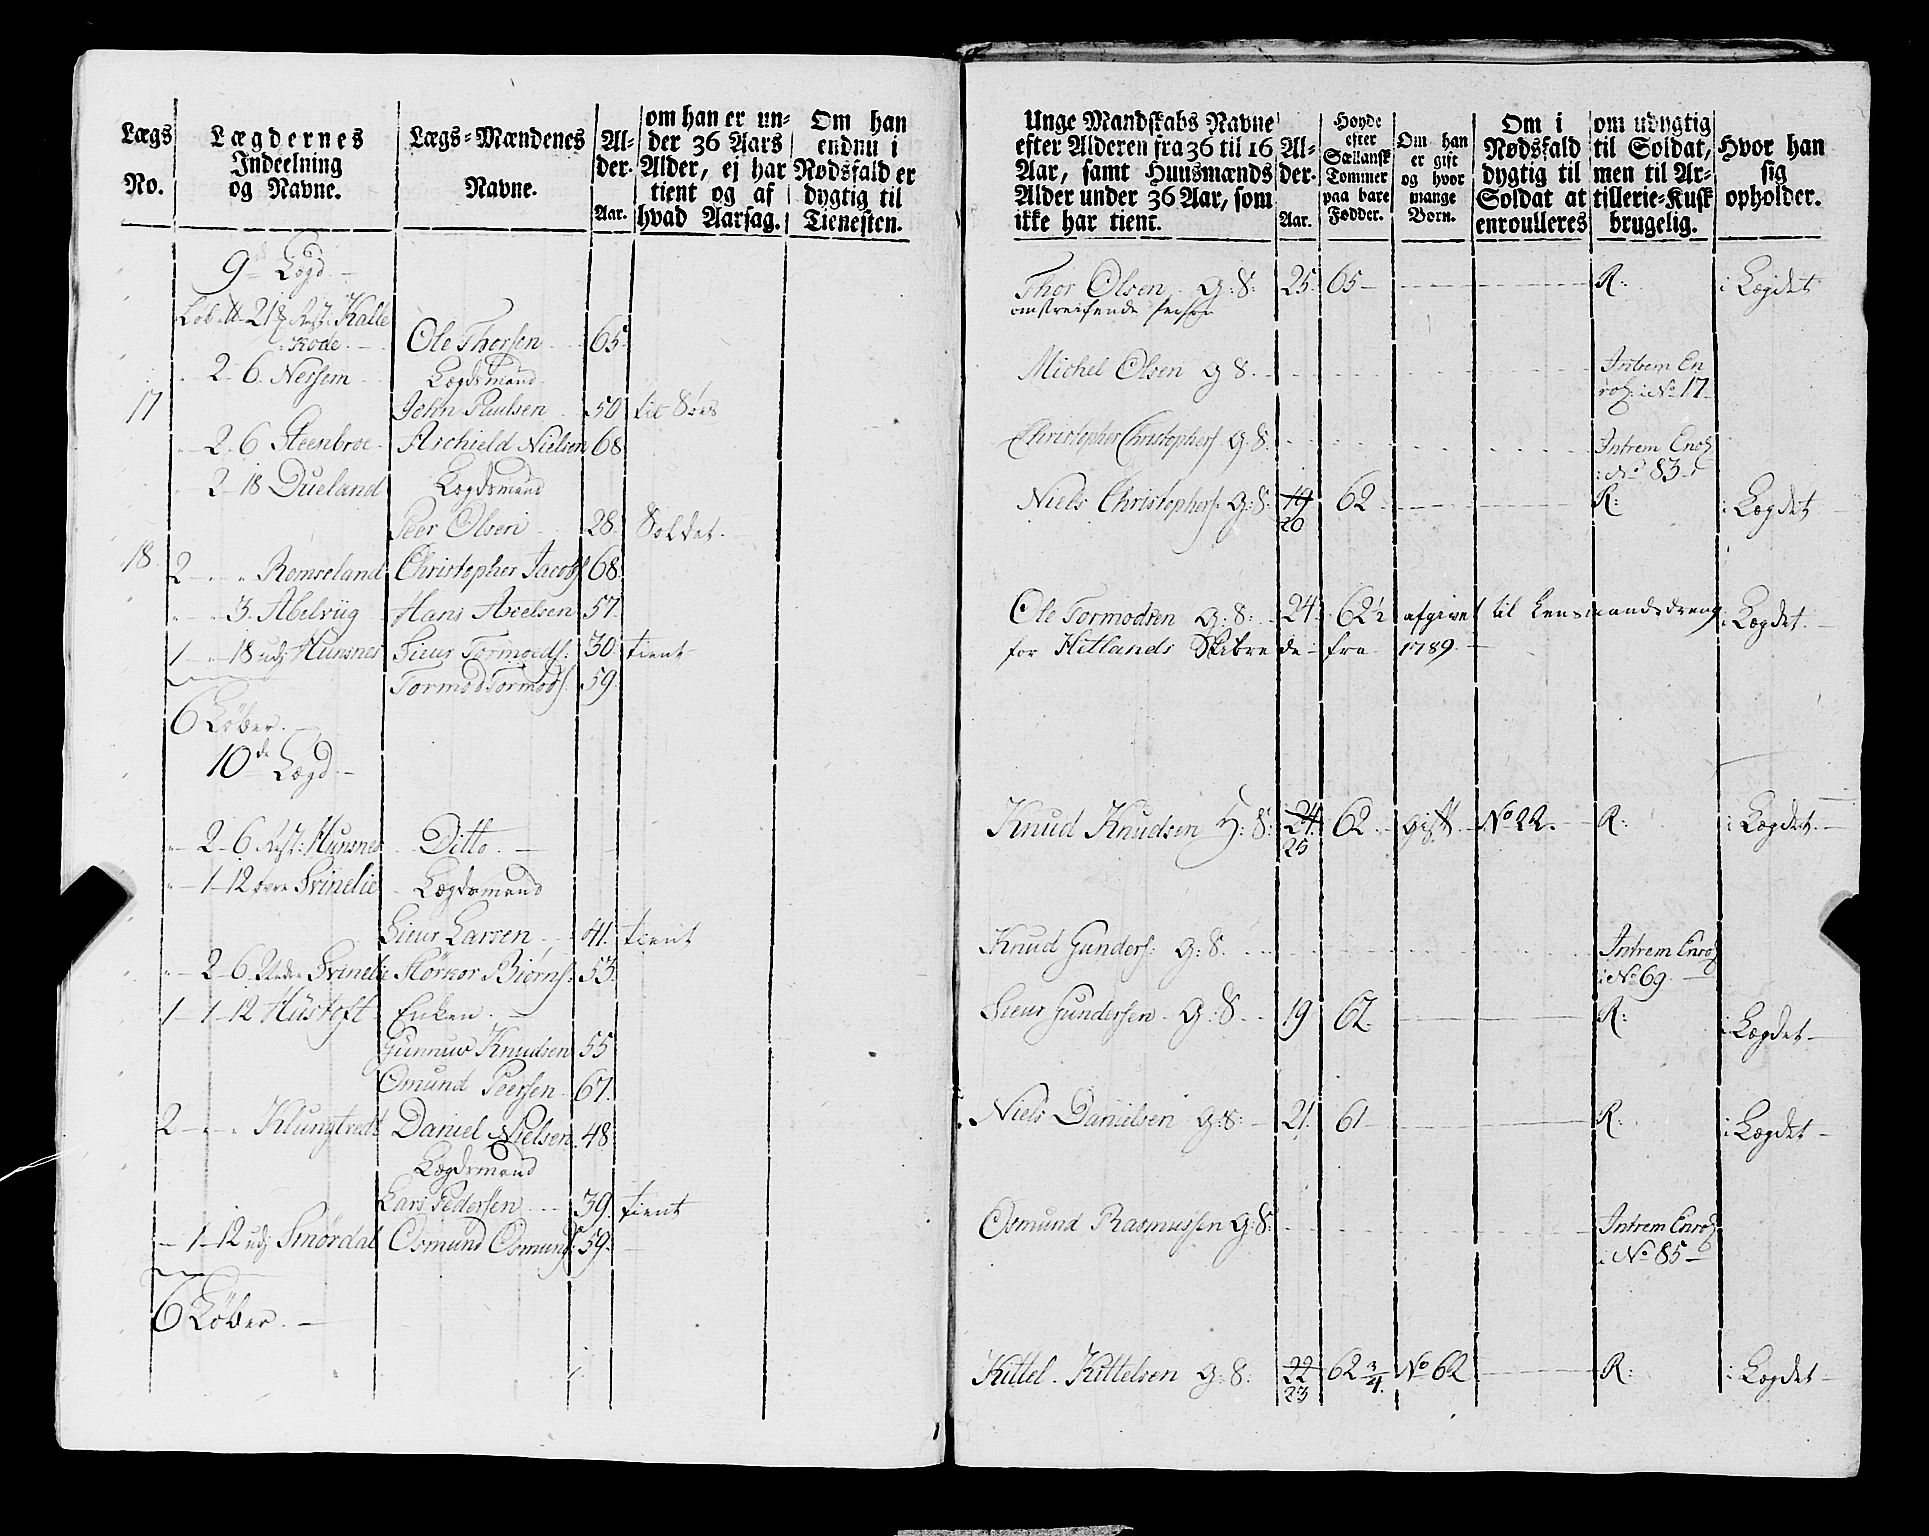 Lægs
No.
Lægdernes
Indeelning
og Navne.
Lægs-Mændenes
Navne.
Al-
der.
Aar.
om han er un-
der 36 Aars
Alder, ej har
tient og af
hvad Aarsag.
Om han
endnu i
Nødsfald er
dygtig til
Tienesten.
9de Lægd.
Kalle
Kode. Ole Thorsen 65
2-6. Nersem Lægdsmand
17 John Paulsen 50
2-6 Steenbroe Archield Nielsen 68
2-18 Dueland Lægdsmand
Peer Olsen 28 Soldat.
18. 2 - - Romseland Christopher Jacobs. 68.
- - 3. Abelviig Hans Axelsen 57.
1 - 18 udj Hunsnes Sieur Tormoeds. 30. tient
Tormod Tormods. 59.
6 Løber.
10de Lægd.
- 2-6 Rest: Hunsnes Ditto.
- 1-12 Svinelie Lægdsmand
Sieur Larsen 41. tient
- 2-6. Svinelie Biørns. 53.
1 - 1-12 Hustoft Enken.
Gunnuv Knudsen 55
Omund Peersen 67.
2 - - Klungtvedt Daniel Nielsen 48
Lægdsmand
Lars Pedersen 39. tient
- 1-12 udj Smördal Osmund Osmunds. 59.
6 Løber.
Unge Mandskabs Navne
efter Alderen fra 36 til 16
Aar, samt Huusmænds
Alder under 36 Aar, som
ikke har tient.
Al-
der.
Aar.
Høyde
efter
Siællansk
Tommer
paa bare
Fødder.
Om han
er gift
og hvor
mange
Børn.
Om i
Nødsfald
dygtig til
Soldat at
enroulleres
om udygtig
til Soldat,
men til Ar-
tillerie-Kusk
brugelig.
Hvor han
sig
opholder.
Thor Olsen G:S: 25. 65 R: i Lægdet
omstreifende
Michel Olsen G S. Intrem En
rol: i No 17
Christopher Christophers G:S. Intrem Enro
i No 83
Niels Christophers. G:S. 19 62 R: i Lægdet
20
Ole Tormodsen G:S: 24. 62½ afgivet til Lensmandsdreng i Lægdet.
for Hetlands Skibrede fra 1789.
Knud Knudsen H:S: 24. 62 gift No 22. R: i Lægdet.
25
Knud Gunders. G:S. Intrem Enro
i No 69.
Sieur Gundersen G:S 19 62. R: i Lægdet
Niels Danielsen G:S: 21. 61 R: i Lægdet
Osmund Rasmussen G:S: Intrem Enro
i No 85
Kittel. Kittelsen G:S: 22 62 3/4. No 62 R: i Lægdet
23